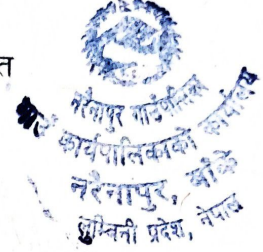 त
नरैनापुर गाउँपालिका
गाउँ कार्यपालिकाको कार्यालय
नरैनापुर, बाँके
लुम्बिनी प्रदेश, नेपाल